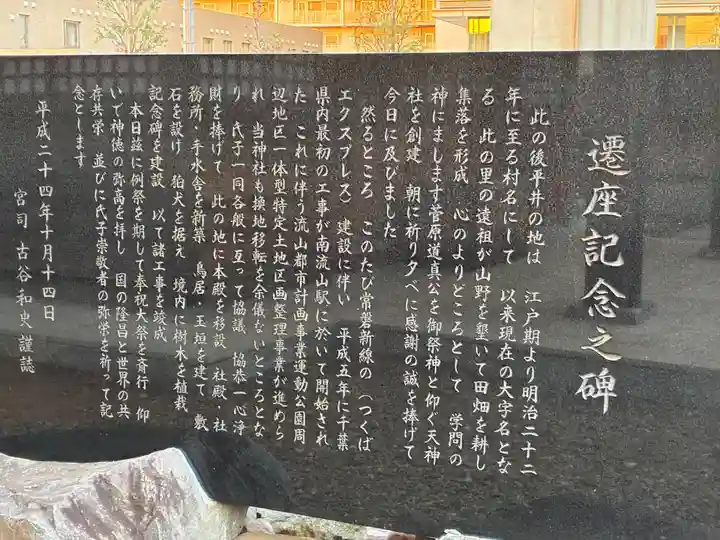 遷座記念之碑
此の後平井の地は 江戸期より明治二十二
年に至る村名にして 以来現在の大字名とな
る 此の里の遠祖が山野を墾いて田畑を耕し
集落を形成 心のよりどころとして 学問の
神にまします菅原道真公を御祭神と仰ぐ天神
社を創建 朝に祈り夕べに感謝の誠を捧げて
今日に及びました
然るところ このたび常磐新線の(つくば
エクスプレス)建設に伴い 平成五年に千葉
県内最初の工事が南流山駅に於いて開始され
た これに伴う流山都市計画事業運動公園周
辺地区一体型特定土地区画整理事業が進めら
れ 当神社も換地移転を余儀ないところとな
り 氏子一同各般に亙って協議 協恭一心浄
財を捧げて 此の地に本殿を移設 社殿・社
務所・手水舎を新築 鳥居・玉垣を建て 敷
石を設け 狛犬を据え 境内に樹木を植栽
記念碑を建設 以て諸工事を竣成
本日茲に例祭を期して奉祝大祭を斎行 仰
いで神徳の弥高を拝し 国の隆昌と世界の共
存共栄 並びに氏子崇敬者の弥栄を祈って記
念とします
平成二十四年十月十四日
宮司 古谷和史 謹誌